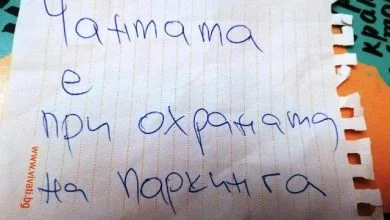 Чантата
е
при охраната
на паркинга
www.vivati.bg